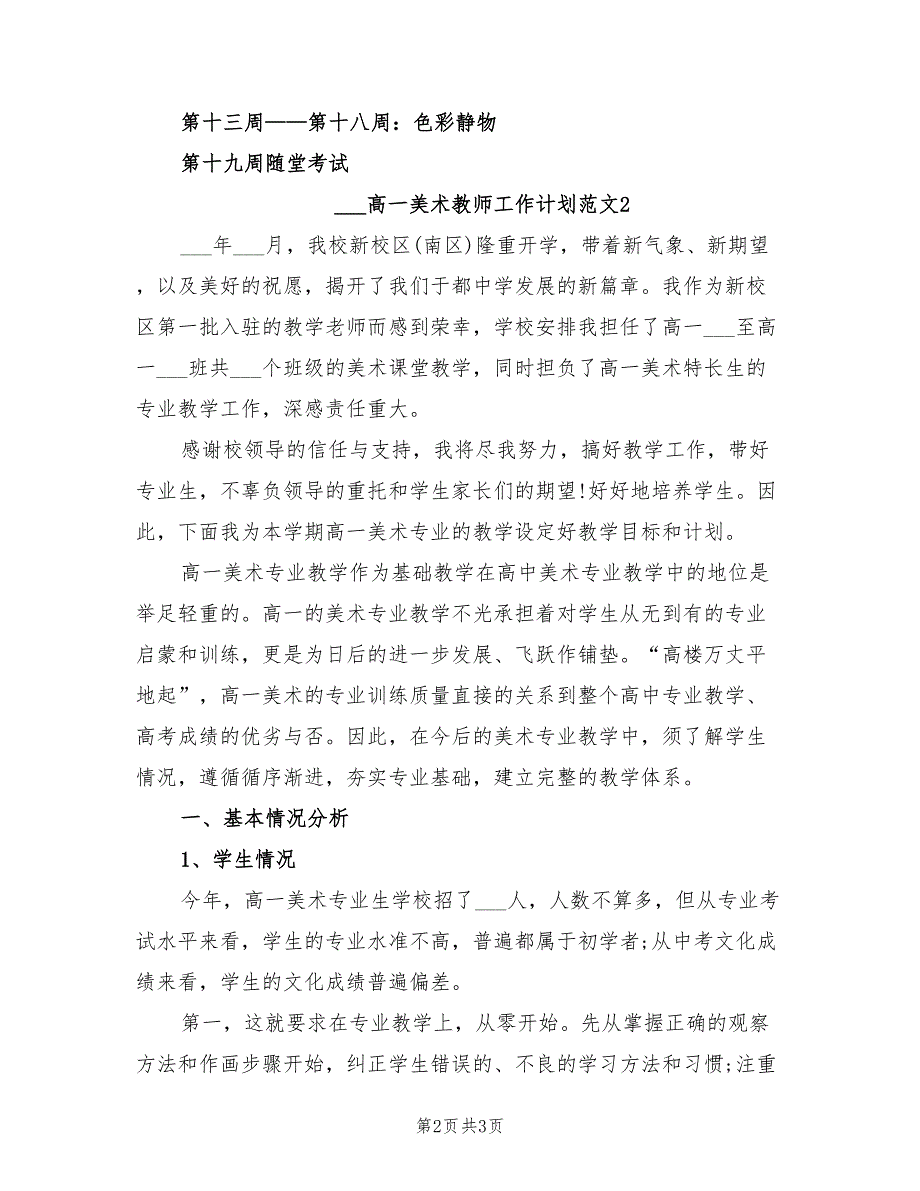 第十三周——第十八周：色彩静物
第十九周随堂考试
___高一美术教师工作计划范文2
___年___月，我校新校区(南区)隆重开学，带着新气象、新期望
，以及美好的祝愿，揭开了我们于都中学发展的新篇章。我作为新校
区第一批入驻的教学老师而感到荣幸，学校安排我担任了高一___至高
一___班共___个班级的美术课堂教学，同时担负了高一美术特长生的
专业教学工作，深感责任重大。
感谢校领导的信任与支持，我将尽我努力，搞好教学工作，带好
专业生，不辜负领导的重托和学生家长们的期望!好好地培养学生。因
此，下面我为本学期高一美术专业的教学设定好教学目标和计划。
高一美术专业教学作为基础教学在高中美术专业教学中的地位是
举足轻重的。高一的美术专业教学不光承担着对学生从无到有的专业
启蒙和训练，更是为日后的进一步发展、飞跃作铺垫。“高楼万丈平
地起”，高一美术的专业训练质量直接的关系到整个高中专业教学、
高考成绩的优劣与否。因此，在今后的美术专业教学中，须了解学生
情况，遵循循序渐进，夯实专业基础，建立完整的教学体系。
一、基本情况分析
1、学生情况
今年，高一美术专业生学校招了___人，人数不算多，但从专业考
试水平来看，学生的专业水准不高，普遍都属于初学者;从中考文化成
绩来看，学生的文化成绩普遍偏差。
第一，这就要求在专业教学上，从零开始。先从掌握正确的观察
方法和作画步骤开始，纠正学生错误的、不良的学习方法和习惯;注重
第2页 共3页